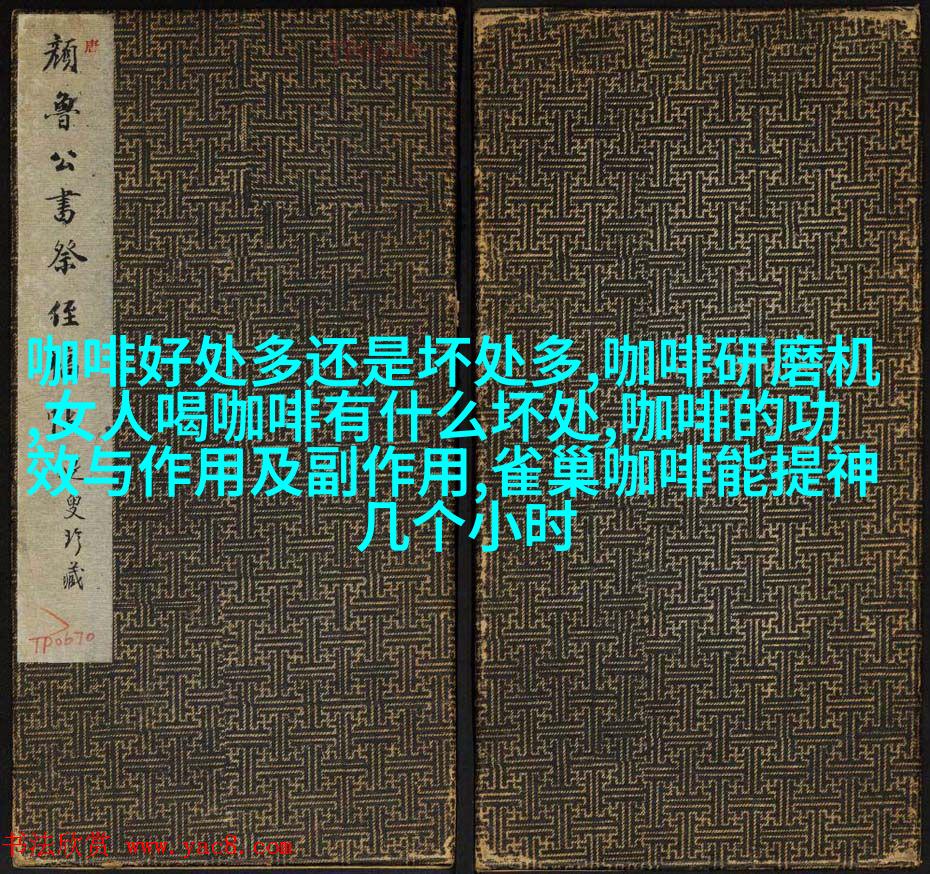 唐
颜鲁公书祭侄
叟珍藏
TP0670
咖啡好处多还是坏处多,咖啡研磨机
,女人喝咖啡有什么坏处,咖啡的功
效与作用及副作用,雀巢咖啡能提神
几个小时
书法欣赏 www.yac8.com